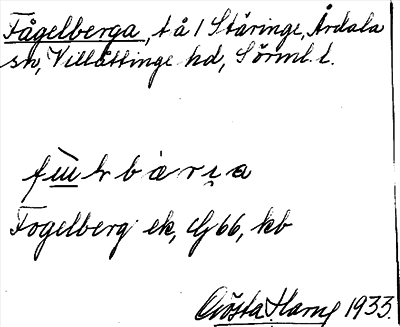 Fågelberga, t å 1 Stäringe, Årdala
sn, Villåttinge hd, Sörml. l.
Fogelberg ek, G 66, kb
Gösta Harny 1933.